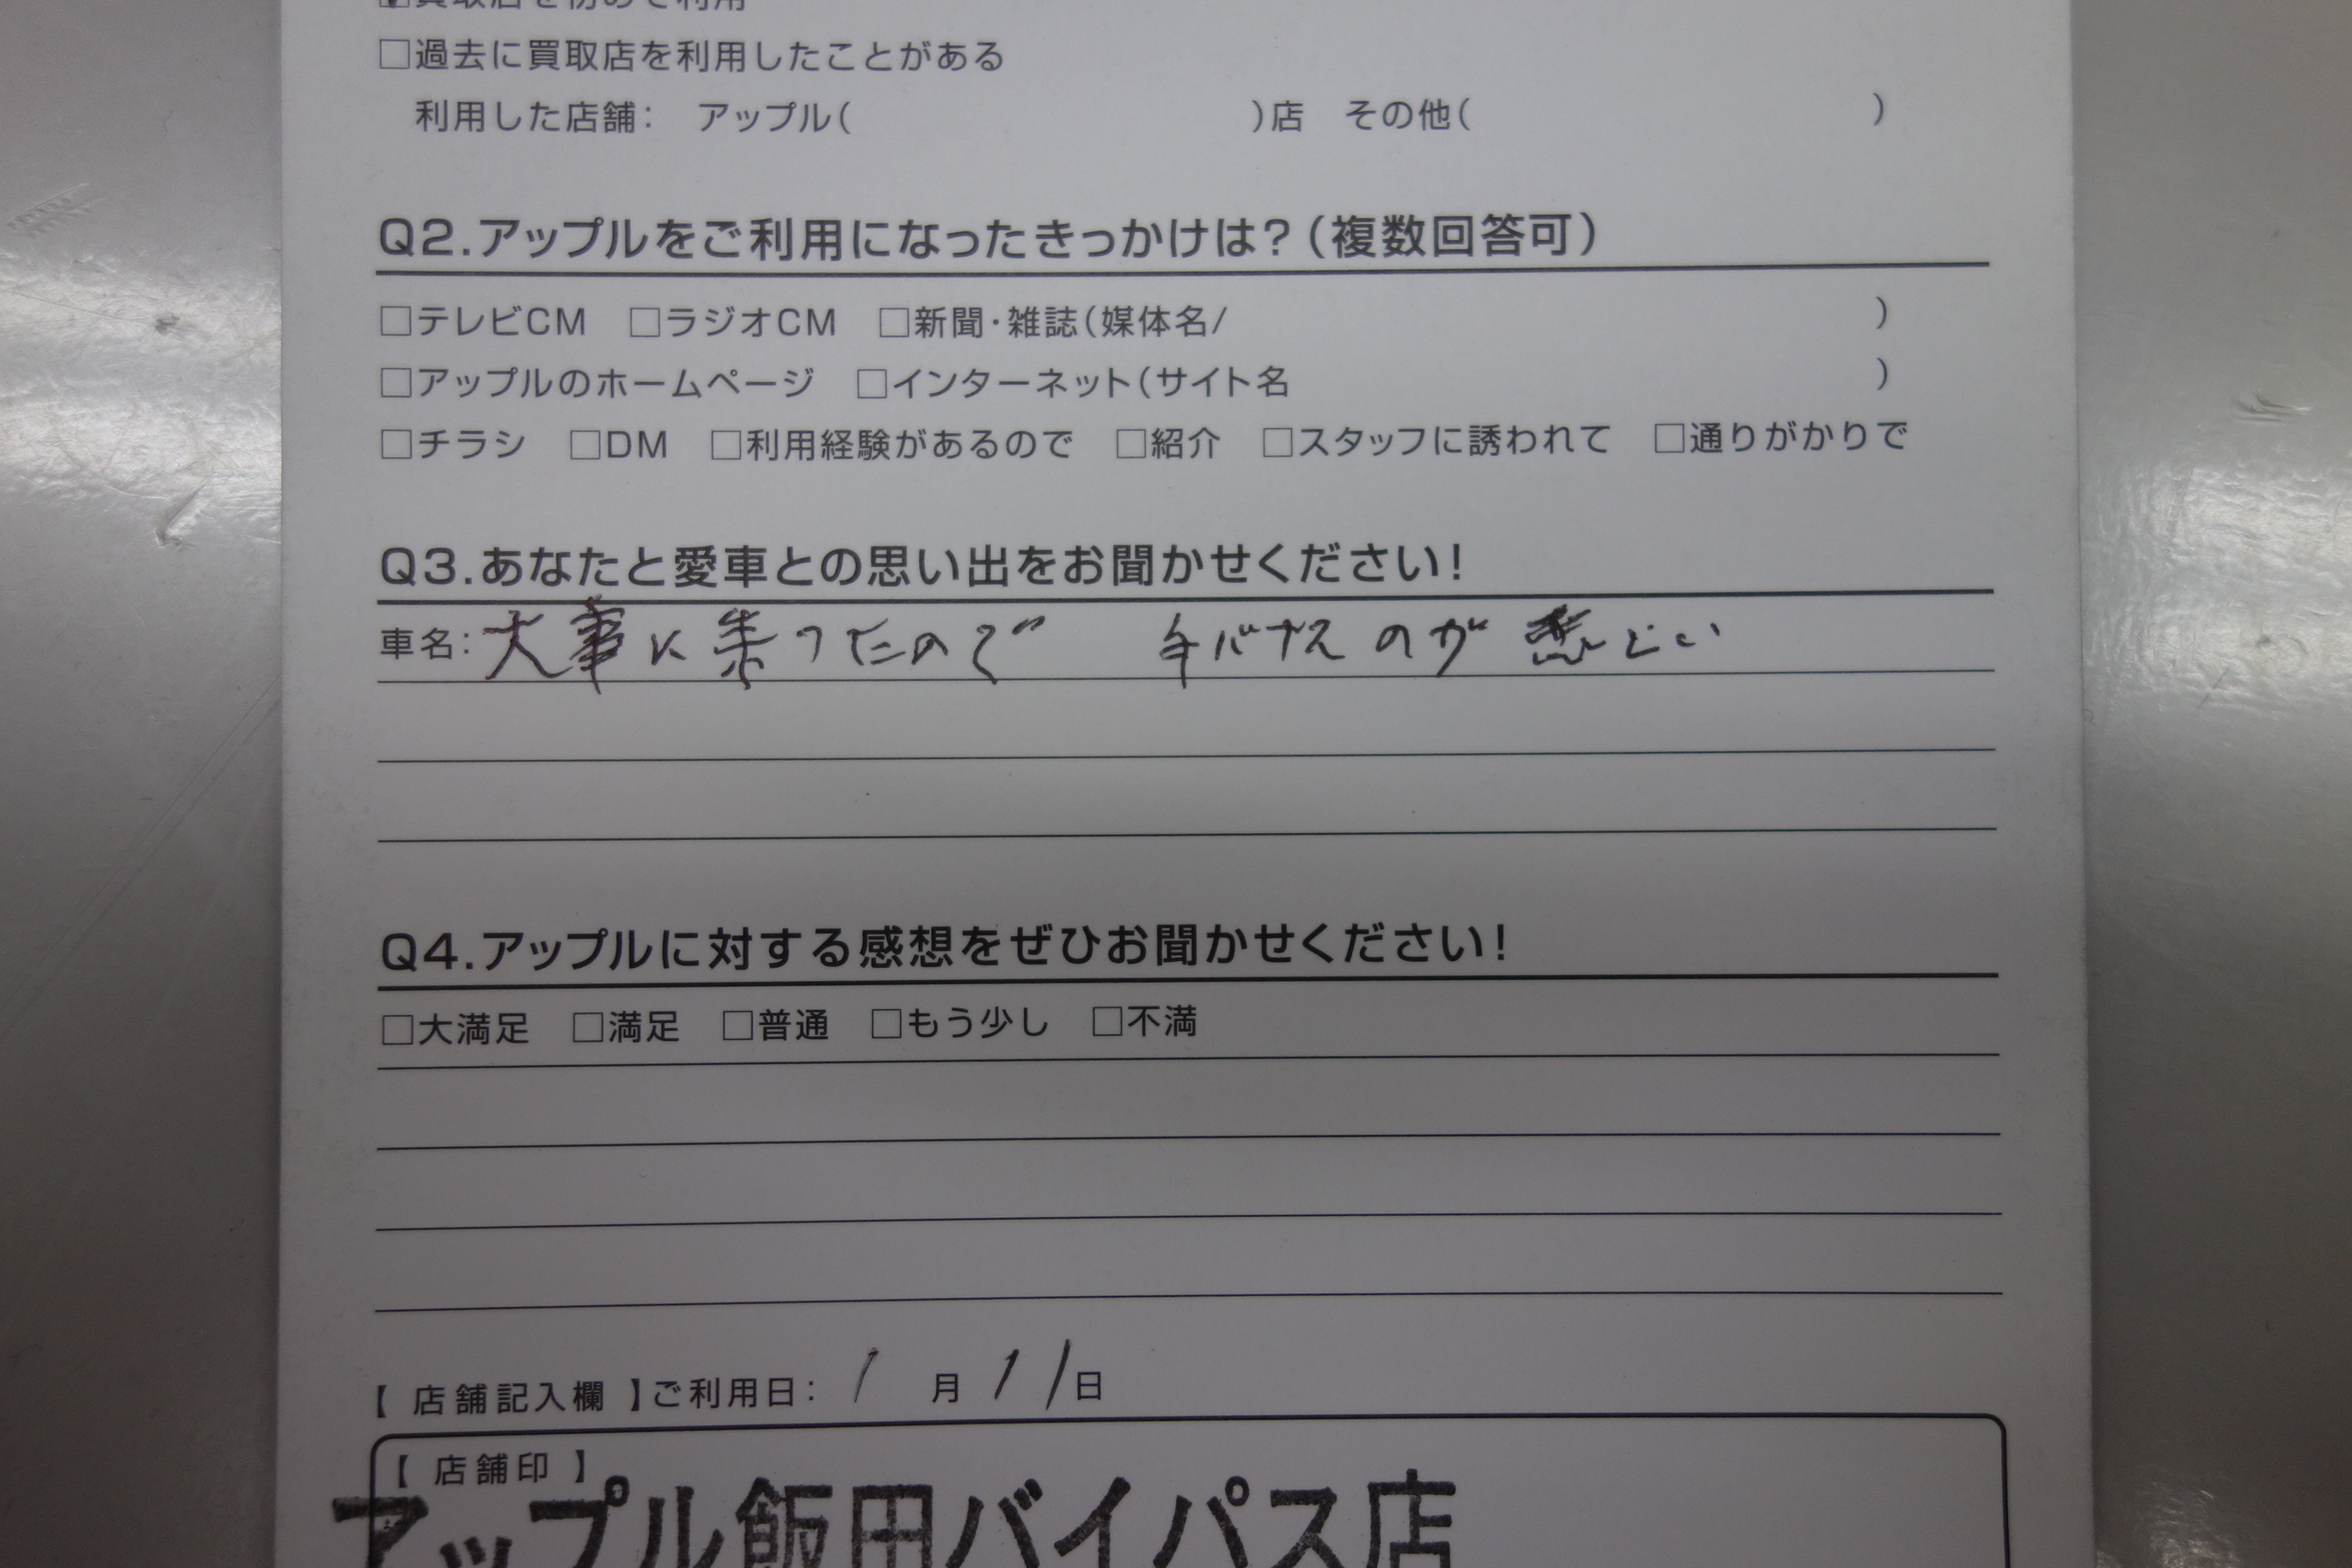 ☑買取店を初めて利用
□過去に買取店を利用したことがある
利用した店舗： アップル( )店 その他( )
Q2.アップルをご利用になったきっかけは？(複数回答可)
□テレビCM □ラジオCM □新聞・雑誌(媒体名/ )
□アップルのホームページ □インターネット(サイト名 )
□チラシ □DM □利用経験があるので □紹介 □スタッフに誘われて □通りがかりで
Q3.あなたと愛車との思い出をお聞かせください！
車名：大事に乗ってたので 手バナスのが悲しい
Q4.アップルに対する感想をぜひお聞かせください！
□大満足 □満足 □普通 □もう少し □不満
【 店舗記入欄 】ご利用日： 1 月 11日
【 店舗印 】
アップル飯田バイパス店